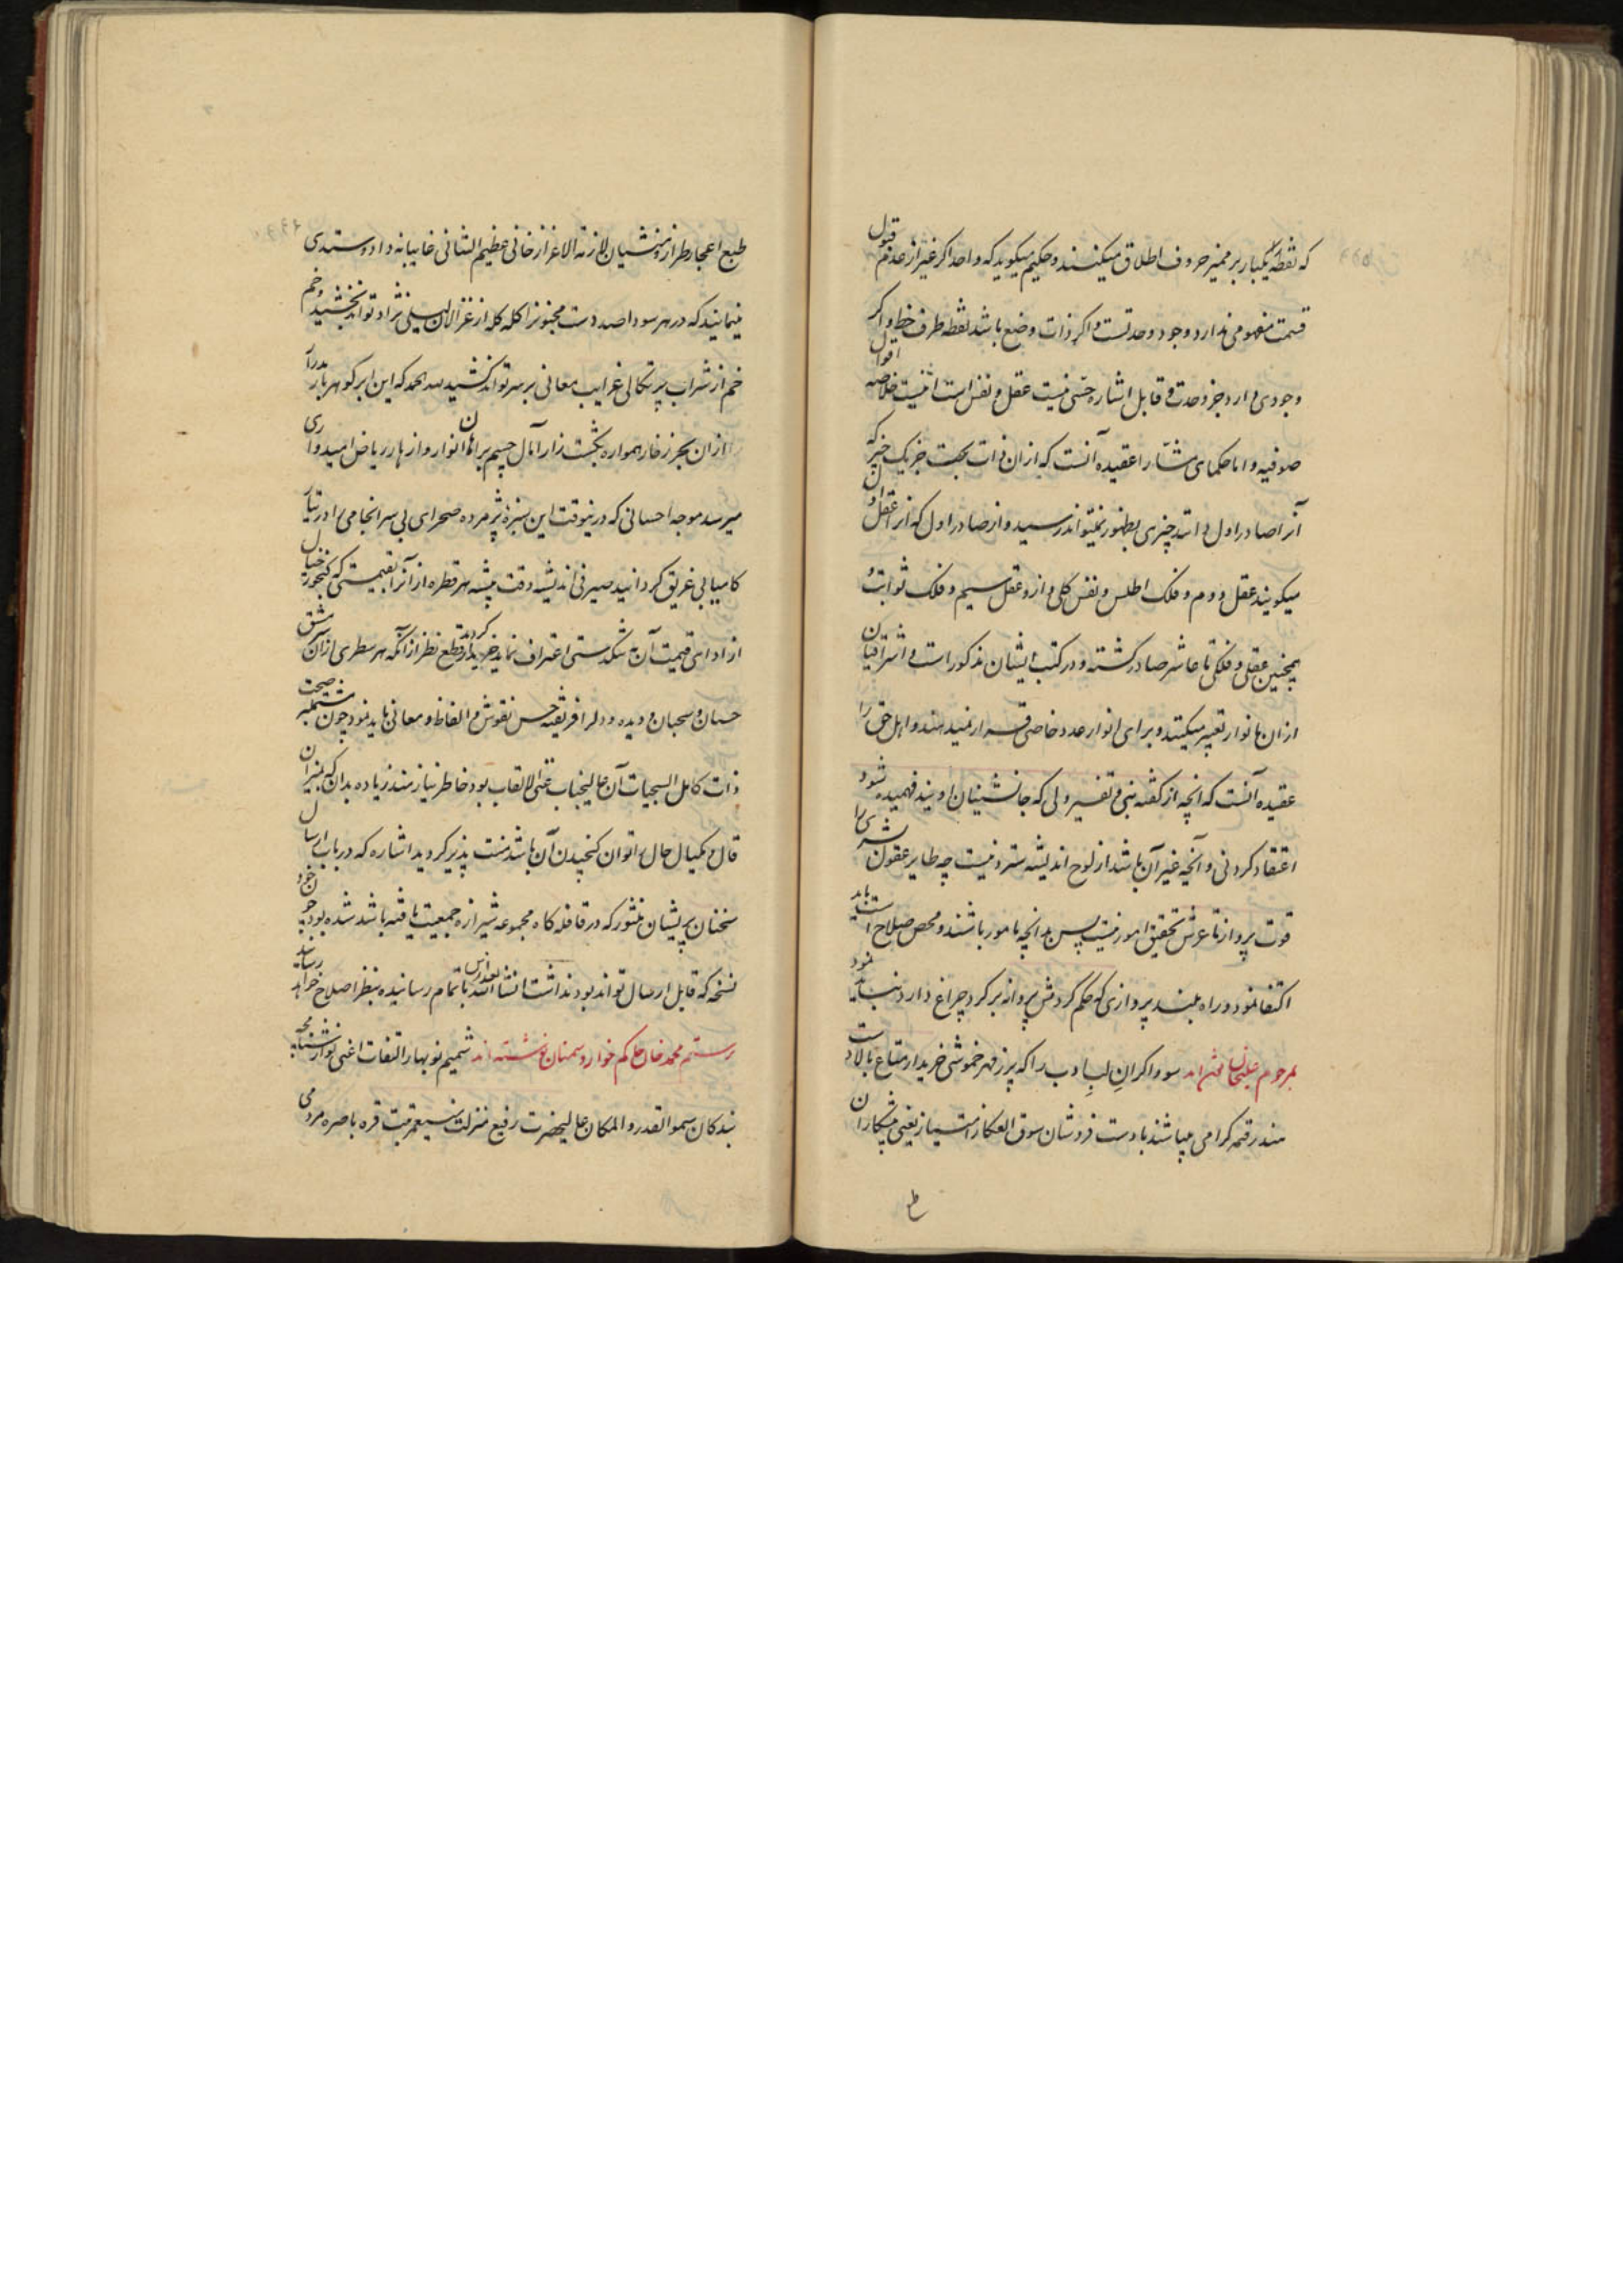 که نقطه یکبار بر ممیز حروف اطلاق میکنند و حکیم میکوید که واحد اکر غیر از عدم قبول
قسمت مفهومی ندارد وجود وحدتست و اکر ذات وضع باشد نقطه طرف خط و اکر
وجودی دارد جز وحدت و قابل اشاره حسی نیست عقل و نفس است اینست خلاصه اقوال
صوفیه و اما حکمای مشا را عقیده آنست که از ان ذات بحت جز یک چیز که
آنرا صادر اول دانند چیزی بظهور نمیتواند رسید و از صادر اول که انرا عقل اول
میکویند عقل دوم و فلک اطلس و نفس کلی و از و عقل سیم و فلک ثوابت و
همچنین عقلی و فلکی تا عاشر صادر کشته و در کتب ایشان مذکور است و اشراقیان
از ان بانوار تعبیر میکنند و برای انوار عدد خاصی قرار نمیدهند و اهل حق را
عقیده آنست که انچه از کفته نبی و تفسیر ولی که جانشینان اویند فهمیده شود
اعتقاد کردنی و آنچه غیر آن باشد از لوح اندیشه ستردنیست چه طایر عقول بشری را
قوت پرواز تا عرش تحقیق امور نیست پس بدانچه مامور باشند و محض صلاح است باید
اکتفا نمود و راه بلند پروازی که حکم کردش پروانه بر کرد چراغ دارد نباید نمود
بمرحوم علیخان نوشته‌اند سوداکران لب ادب را که پر زر مهر خموشی خریدار متاع بالادست
مند رقمه کرامی میباشند بادست فروشان سوق العکاز امتیاز یعنی پیشکاران
ط
طبع اعجاز طراز و منشیان لازنه الاعزاز خانی عظیم الشانی غایبانه داد و ستدی
مینمایند که در هر سودا صد دست مجنونرا کله کله از غزالان لیلی نژاد تواند بخشید و خم
خم از شراب پرتکالی غرایب معانی بر سر تواند کشید لله الحمد که این ابر کوهربار
از ان بحر زخار همواره بکشت زار آمال چشم براهان انوار و ازهار ریاض امیدواری
میرسد موجه احسانی که درینوقت این سبزه پژمرده صحرای بی سرانجامی را در تیار
کامیابی غریق کردانید صیرفی اندیشه دقت پیشه هر قطره از انرا بقیمتی که کنجور خیال
از ادای قیمت آن به تنکدستی اعتراف نماید خریدار کردید قطع نظر از آنکه هر سطری از ان سرمشق
حسان و سحبان دیده و دلرا فریفته حسن نقوش و الفاظ و معانی باید نمود چون مشتمل بر صحت
ذات کامل السجیات آن عالیجناب غنی الالقاب بود خاطر نیازمند زیاده بدان که بمیزان
قال و مکیال حال توان کنجیدن آن باشد منت پذیر کردید اشاره که در باب ارسال
سخنان پریشان منثور که در قافله کاه مجموعه شیرازه جمعیت یافته باشد شده بود چون خود
نسخه که قابل ارسال تواند بود نداشت انشاالله بعد ازین باتمام رسانیده بنظر اصلاح خواهد رسانید
برستم محمد خان حاکم خوار و سمنان نوشته‌اند شمیم نوبهار التفات اعنی نوازشنامچه
بندکان سمو القدر و المکان عالیحضرت رفیع منزلت منیع مرتبت قره باصره مردمی